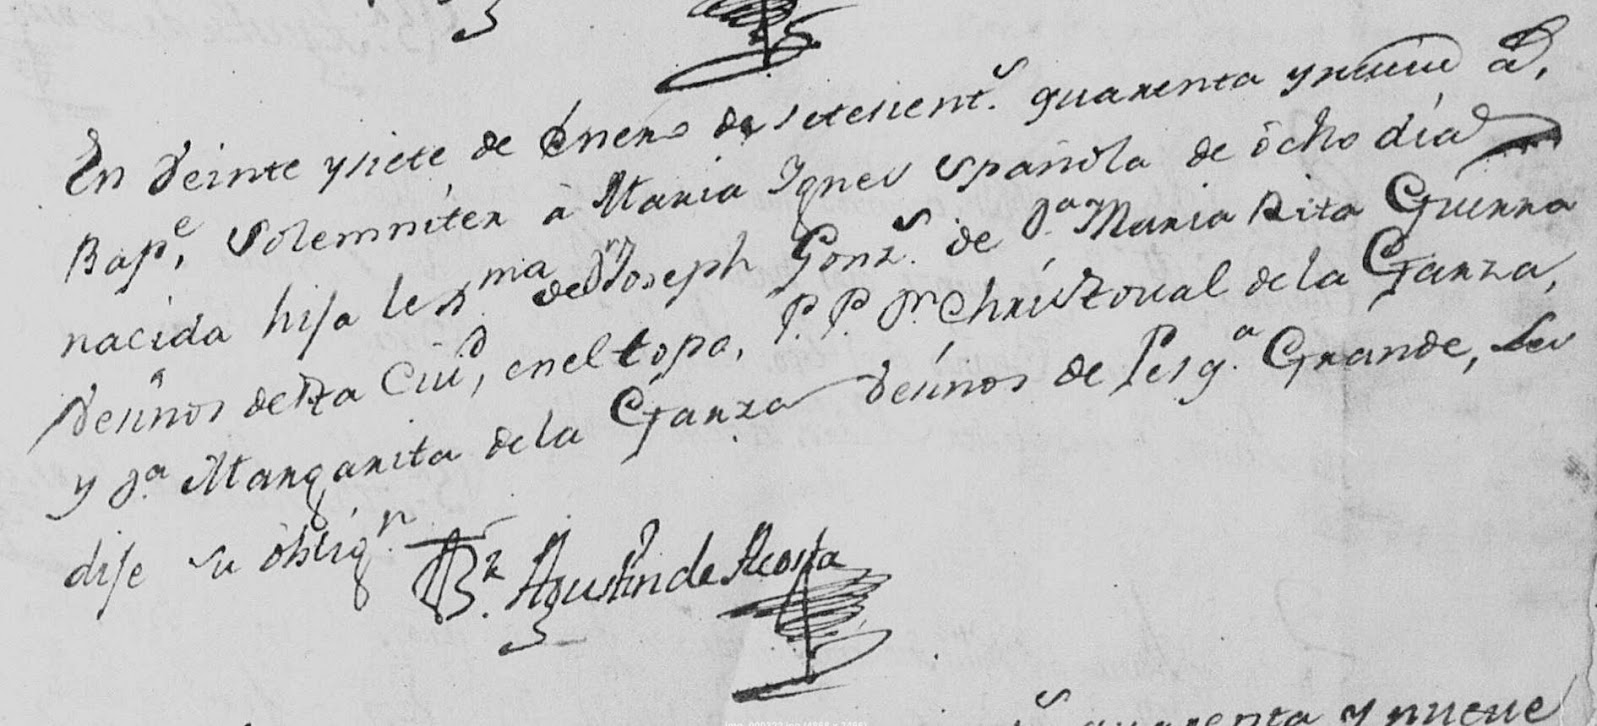 En Veinte y siete de Enero de setesient.s quarenta y nueve a.s
Bap.e, Solemniter â Maria Ygnes española de ôcho dias
nacida hija lex.ma de D.n Joseph Gonz.s de D.a Maria Rita Guerra
Vesinos desta Ciu.d, en el topo, P.P. D.n Christoval de la Garza,
y D.a Margarita de la Garza Vesinos de Pesq.a Grande, les
dije su ôblig.n B.r Agustin de Acosta
quarenta y nueve